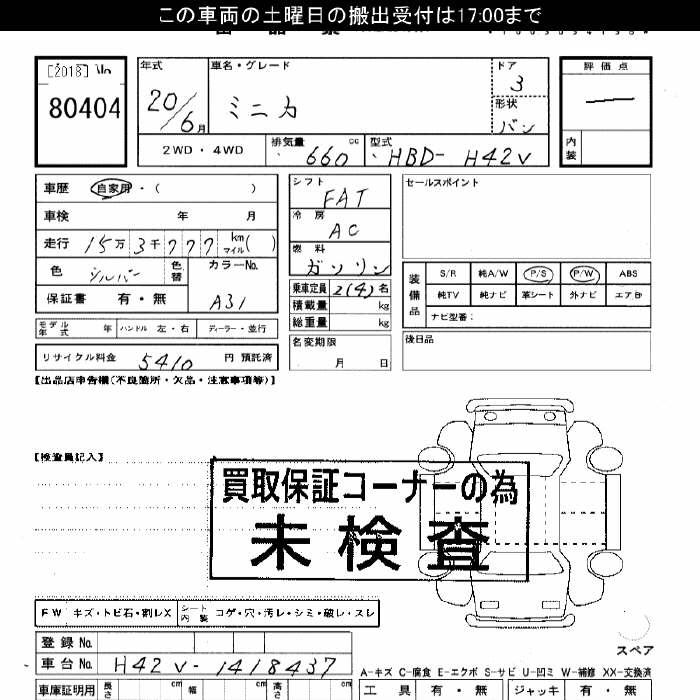 この車両の土曜日の搬出受付は17:00まで
[2018] No
80404
年式 車名・グレード ドア 評価点
20/6月 ミニカ 3 —
形状 バン
2WD・4WD 排気量 660 cc 型式 HBD- H42V 内装
車歴 自家用・( )
車検 年 月
走行 15万3千777 km マイル ( )
色 シルバー 色替 カラーNo. A31
保証書 有・無
シフト FAT
冷房 AC
燃料 ガソリン
乗車定員 2(4)名
積載量 kg
総重量 kg
名変期限 月 日
セールスポイント
装備品 S/R 純A/W P/S P/W ABS
純TV 純ナビ 革シート 外ナビ エアB
ナビ型番:
後日品
モデル年式 年 ハンドル 左・右 ディーラー・並行
リサイクル料金 5410 円 預託済
【出品店申告欄(不良箇所・欠品・注意事項等)】
【検査員記入】
買取保証コーナーの為
未検査
FW キズ・トビ石・割レX シート内装 コゲ・穴・汚レ・シミ・破レ・スレ
スペア
登録No.
車台No. H42V-1418437
A-キズ C-腐食 E-エクボ S-サビ U-凹ミ W-補修 XX-交換済
車庫証明用 長さ cm 幅 cm 高さ cm 工具 有・無 ジャッキ 有・無